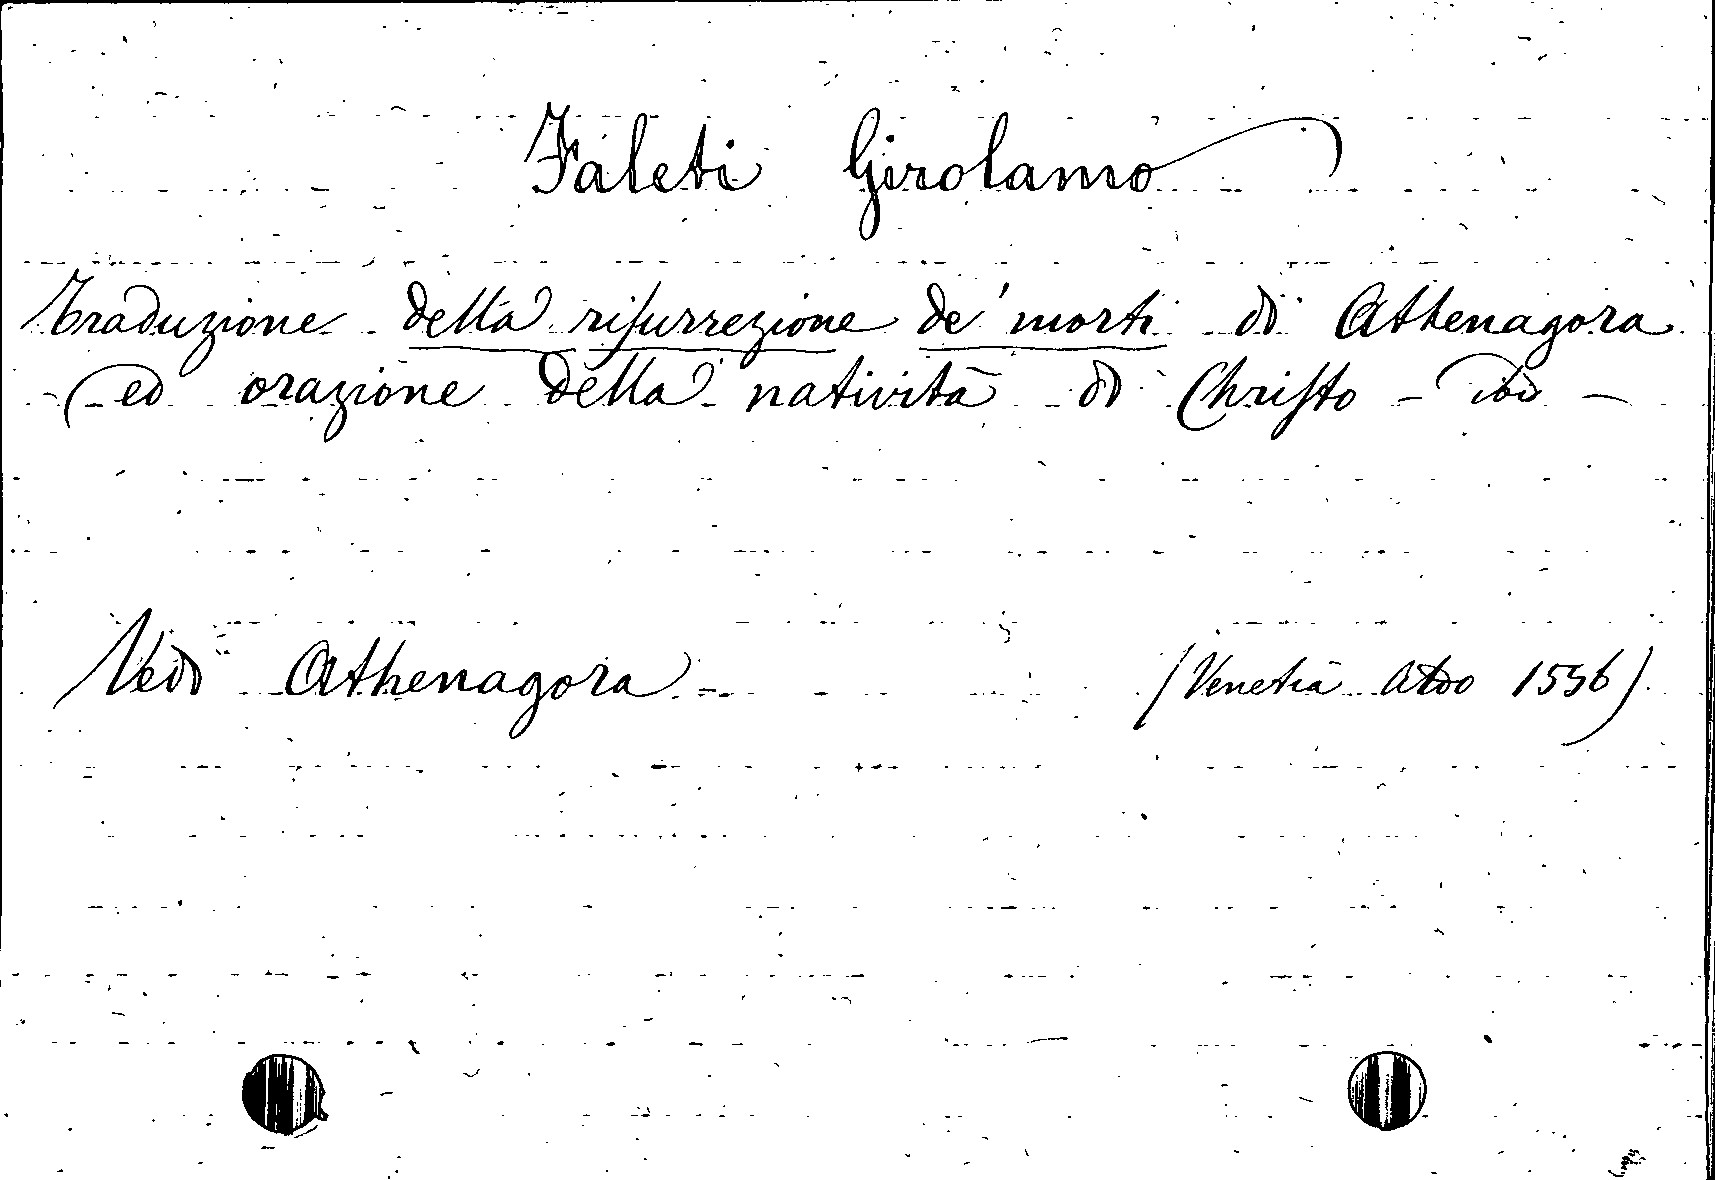 Faleti Girolamo
Traduzione della riſurrezione de' morti di Athenagora
ed orazione della natività di Chriſto - ibi -
Vedi Athenagora (Venetia Aldo 1556)